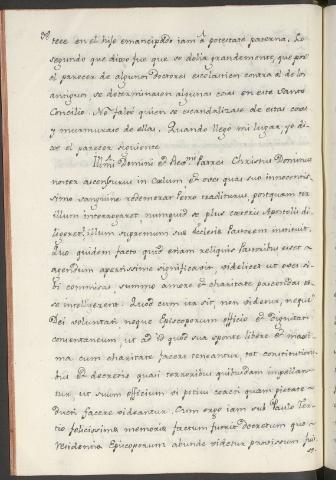 tece en el hijo emancipado iam â potestate paterna. Lo
segundo que dixo fue que se dolia grandemente, que por
el parecer de algunos Doctores escolasticos contra el de los
antiguos se determinasen algunas cosas en este Santo
Concilio. No faltó quien se escandalizase de estas cosas
y murmurase de ellas. Quando llegó mi lugar, yo di-
xe el parecer siguiente.
Ill.mi Domini et Rev.mi Patres Christus Dominus
noster ascensurus in Cœlum et oves quas suo innocentis-
simo sanguine redemerat Petro traditurus, postquam ter
illum interrogaret nunquid se plus cæteris Apostolis di-
ligeret, illum supremum suæ Ecclesiæ Pastorem instituit.
Quo quidem facto quid etiam reliquis Pastoribus esset
agendum apertissime significavit, videlicet ut oves si-
bi commissas, summo amore et charitate pascendas es-
se intelligerent. Quod cum ita sit, non videtur, neque
Dei voluntati neque Episcoporum officio et dignitati
conventaneum, ut ad id quod sua sponte libere et maxi-
ma cum charitate facere teneantur, tot constitutioni-
bus et decretis quasi terroribus quibusdam impellan-
tur, ut suum officium si potius coacti quam pietate
ducti facere videantur. Cum ergo iam sub Paulo Ter-
tio felicissimæ memoriæ factum fuerit decretum quo
residentiæ Episcoporum abunde videtur provissum fui-